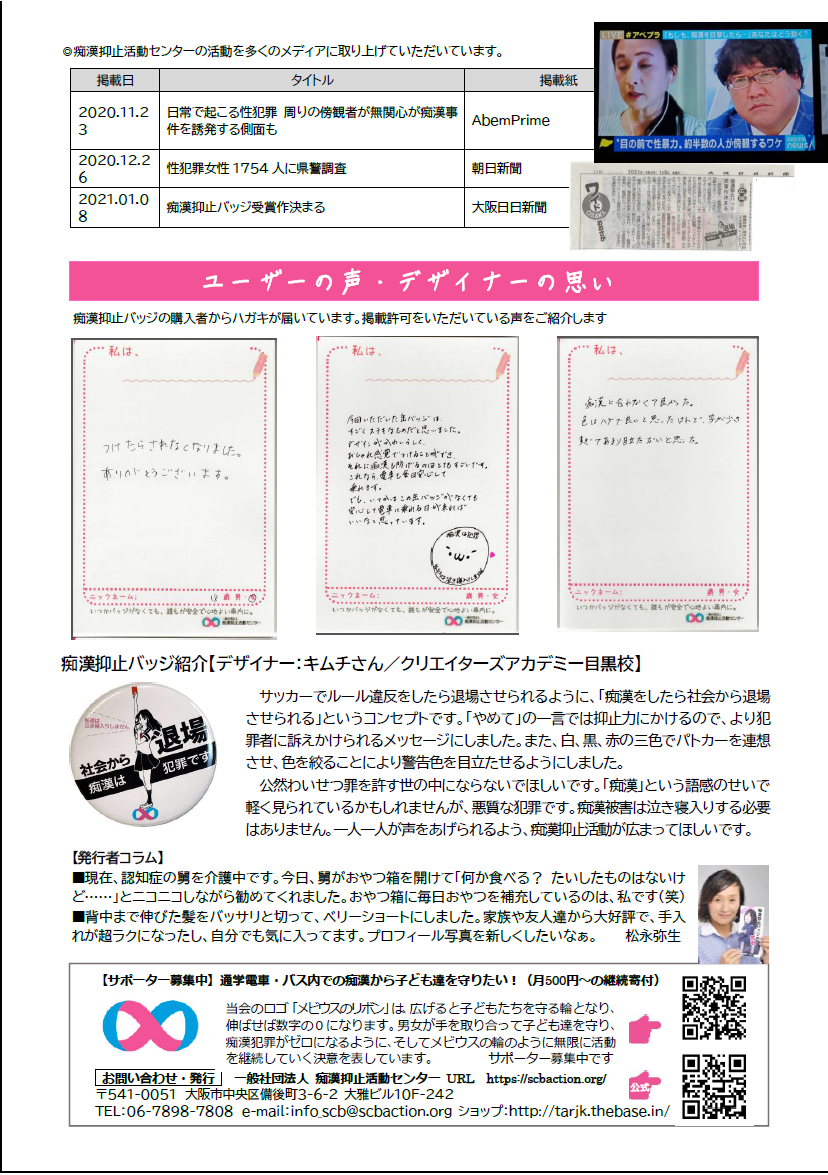 ◎痴漢抑止活動センターの活動を多くのメディアに取り上げていただいています。
掲載日 タイトル 掲載紙
2020.11.23 日常で起こる性犯罪 周りの傍観者が無関心が痴漢事件を誘発する側面も AbemPrime
2020.12.26 性犯罪女性1754人に県警調査 朝日新聞
2021.01.08 痴漢抑止バッジ受賞作決まる 大阪日日新聞
LIVE #アベプラ 「もしも、痴漢を目撃したら…」あなたはどう動く?
"目の前で性暴力。約半数の人が傍観するワケ
news
ワイド
ユーザーの声・デザイナーの思い
痴漢抑止バッジの購入者からハガキが届いています。掲載許可をいただいている声をご紹介します
私は、
つけたらされなくなりました。
ありがとうございます。
ニックネーム: 18 歳 男・女
いつかバッジがなくても、誰もが安全で心地よい車内に。
痴漢抑止活動センター
私は、
今回いただいた缶バッジは、
すごくステキなものだと思いました。
デザインがかわいらしく、
おしゃれ感覚でつけることができ、
それに痴漢も防げるのはとてもすごいです。
これなら、電車も毎日安心して
乗れます。
でも、いつかはこの缶バッジがなくても
安心して電車に乗れる日が来れば
いいなと思っています。
痴漢は犯罪
ニックネーム: 歳 男・女
いつかバッジがなくても、誰もが安全で心地よい車内に。
痴漢抑止活動センター
私は、
痴漢に合わなくて良かった。
色はハデで良いと思ったけれど、字が少さ
すぎてあまり目立たないと思った。
ニックネーム: 歳 男・女
いつかバッジがなくても、誰もが安全で心地よい車内に。
痴漢抑止活動センター
痴漢抑止バッジ紹介【デザイナー:キムチさん/クリエイターズアカデミー目黒校】
私達は
泣き寝入りしません
社会から
退場
痴漢は
犯罪です
サッカーでルール違反をしたら退場させられるように、「痴漢をしたら社会から退場
させられる」というコンセプトです。「やめて」の一言では抑止力にかけるので、より犯
罪者に訴えかけられるメッセージにしました。また、白、黒、赤の三色でパトカーを連想
させ、色を絞ることにより警告色を目立たせるようにしました。
公然わいせつ罪を許す世の中にならないでほしいです。「痴漢」という語感のせいで
軽く見られているかもしれませんが、悪質な犯罪です。痴漢被害は泣き寝入りする必要
はありません。一人一人が声をあげられるよう、痴漢抑止活動が広まってほしいです。
【発行者コラム】
■現在、認知症の舅を介護中です。今日、舅がおやつ箱を開けて「何か食べる? たいしたものはないけ
ど……」とニコニコしながら勧めてくれました。おやつ箱に毎日おやつを補充しているのは、私です(笑)
■背中まで伸びた髪をバッサリと切って、ベリーショートにしました。家族や友人達から大好評で、手入
れが超ラクになったし、自分でも気に入ってます。プロフィール写真を新しくしたいなぁ。 松永弥生
【サポーター募集中】通学電車・バス内での痴漢から子ども達を守りたい!(月500円~の継続寄付)
当会のロゴ「メビウスのリボン」は、広げると子どもたちを守る輪となり、
伸ばせば数字の0になります。男女が手を取り合って子ども達を守り、
痴漢犯罪がゼロになるように、そしてメビウスの輪のように無限に活動
を継続していく決意を表しています。 サポーター募集中です
お問い合わせ・発行 一般社団法人 痴漢抑止活動センター URL https://scbaction.org/
公式
〒541-0051 大阪市中央区備後町3-6-2 大雅ビル10F-242
TEL:06-7898-7808 e-mail:info_scb@scbaction.org ショップ:http://tarjk.thebase.in/